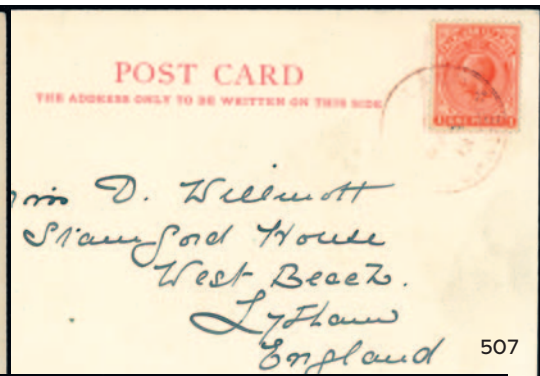 POST CARD
THE ADDRESS ONLY TO BE WRITTEN ON THIS SIDE
D. Willmott
Stamford House
West Beach.
Lytham
England
507